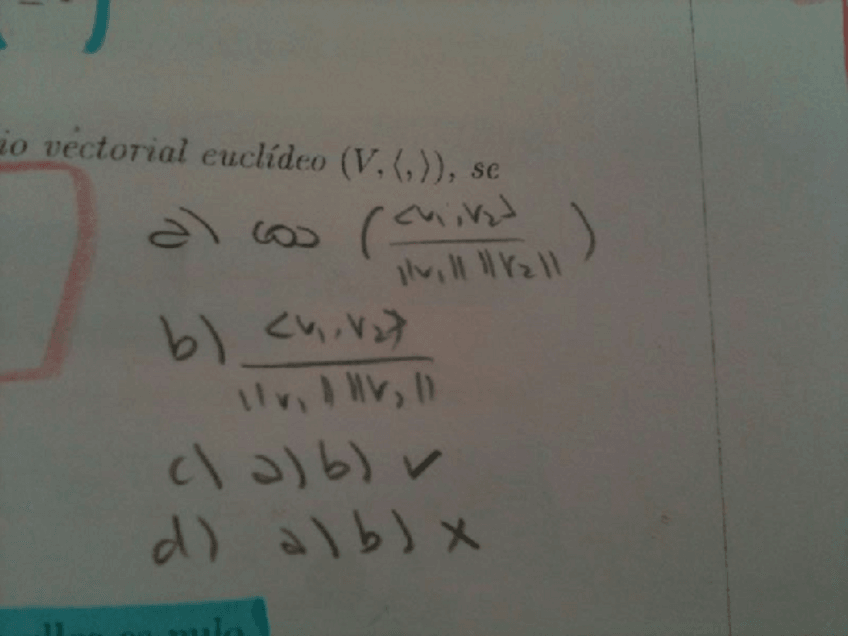 vectorial euclídeo (V,⟨,⟩), se
a) cos (<v₁,v₂> / ||v₁|| ||v₂||)
b) <v₁,v₂> / ||v₁|| ||v₂||
c) a) b) ✓
d) a) b) ×
es nulo